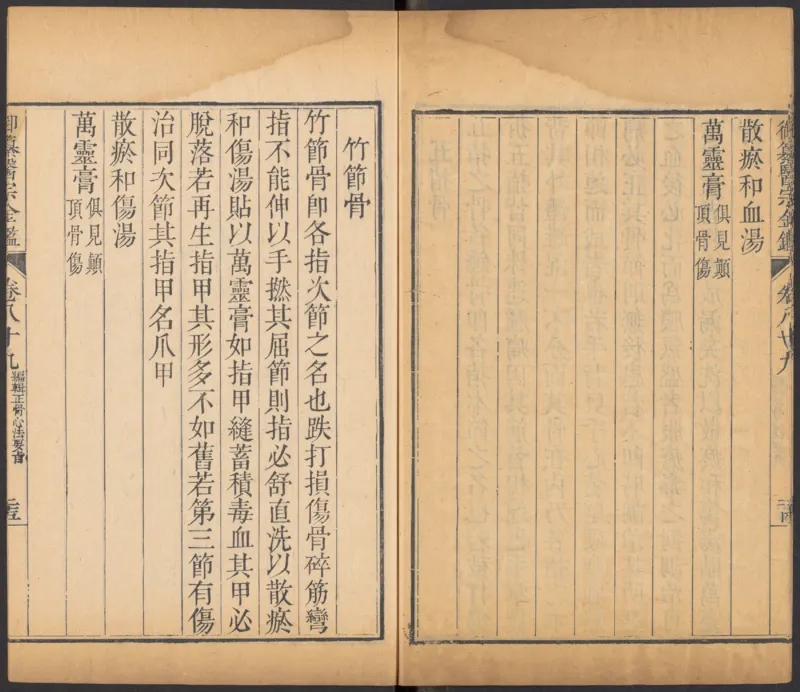 散瘀和血湯
萬靈膏俱見顛頂骨傷
竹節骨
竹節骨卽各指次節之名也跌打損傷骨碎筋彎
指不能伸以手撚其屈節則指必舒直洗以散瘀
和傷湯貼以萬靈膏如指甲縫蓄積毒血其甲必
脫落若再生指甲其形多不如舊若第三節有傷
治同次節其指甲名爪甲
散瘀和傷湯
萬靈膏俱見顛頂骨傷
御纂醫宗金鑑 卷八十九 編輯正骨心法要旨 二五